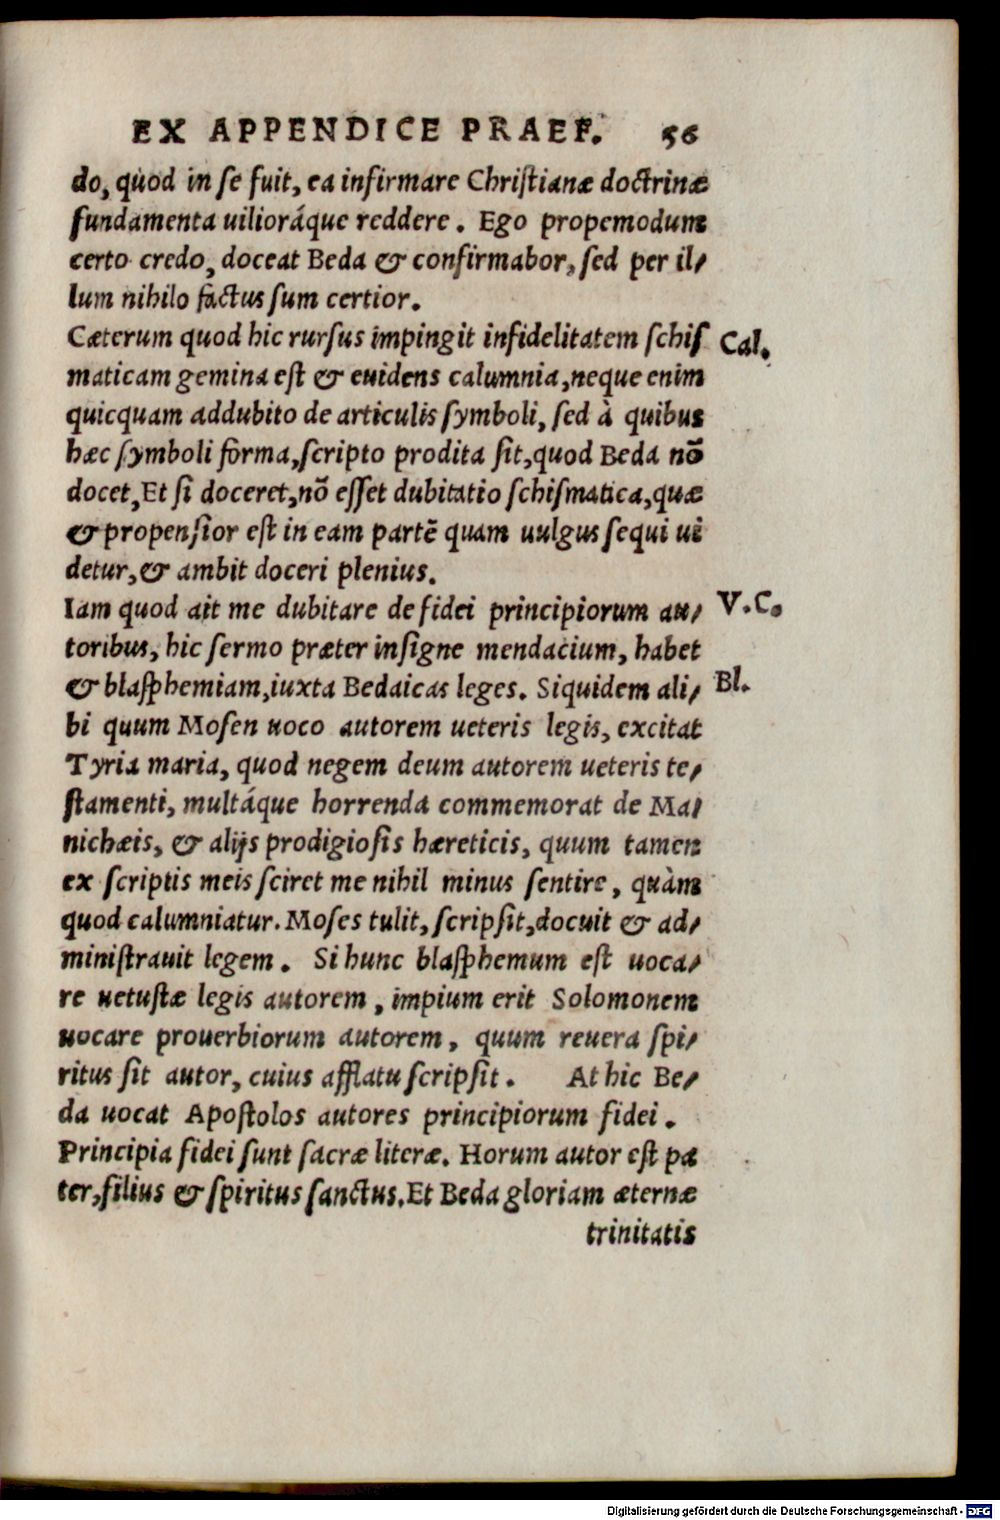 EX APPENDICE PRAEF. 56
do, quod in se fuit, ea infirmare Christianæ doctrinæ
fundamenta uilioráque reddere. Ego propemodum
certo credo, doceat Beda & confirmabor, sed per il/
lum nihilo factus sum certior.
Cæterum quod hic rursus impingit infidelitatem schis Cal.
maticam gemina est & euidens calumnia, neque enim
quicquam addubito de articulis symboli, sed à quibus
hæc symboli forma, scripto prodita sit, quod Beda nõ
docet, Et si doceret, nõ esset dubitatio schismatica, quæ
& propensior est in eam partẽ quam uulgus sequi ui
detur, & ambit doceri plenius.
Iam quod ait me dubitare de fidei principiorum au/ V.C.
toribus, hic sermo præter insigne mendacium, habet
& blasphemiam, iuxta Bedaicas leges. Siquidem ali/ Bl.
bi quum Mosen uoco autorem ueteris legis, excitat
Tyria maria, quod negem deum autorem ueteris te/
stamenti, multáque horrenda commemorat de Ma/
nichæis, & alijs prodigiosis hæreticis, quum tamen
ex scriptis meis sciret me nihil minus sentire, quàm
quod calumniatur. Moses tulit, scripsit, docuit & ad/
ministrauit legem. Si hunc blasphemum est uoca/
re uetustæ legis autorem, impium erit Solomonem
uocare prouerbiorum autorem, quum reuera spi/
ritus sit autor, cuius afflatu scripsit. At hic Be/
da uocat Apostolos autores principiorum fidei.
Principia fidei sunt sacræ literæ. Horum autor est pa
ter, filius & spiritus sanctus. Et Beda gloriam æternæ
trinitatis
Digitalisierung gefördert durch die Deutsche Forschungsgemeinschaft - DFG